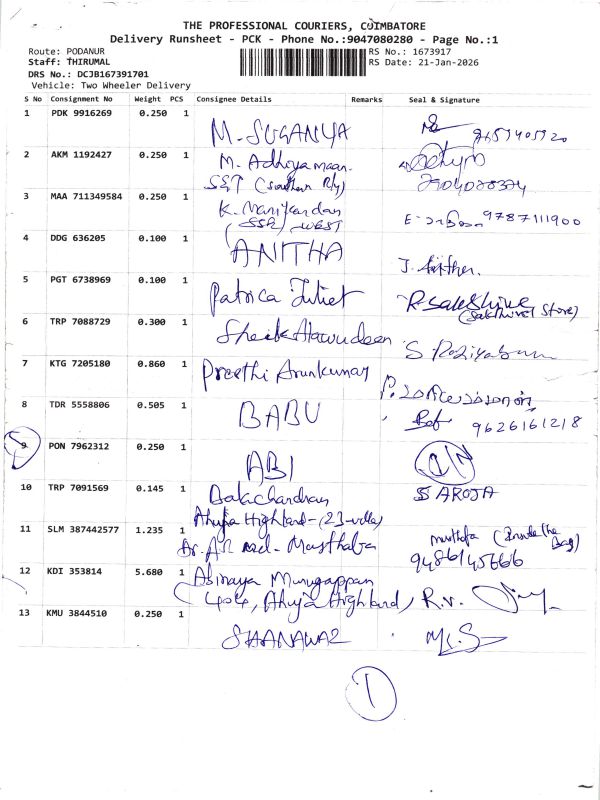 THE PROFESSIONAL COURIERS, COIMBATORE
Delivery Runsheet - PCK - Phone No.:9047080280 - Page No.:1
Route: PODANUR
RS No.: 1673917
Staff: THIRUMAL
RS Date: 21-Jan-2026
DRS No.: DCJB167391701
Vehicle: Two Wheeler Delivery
S No Consignment No Weight PCS Consignee Details Remarks Seal & Signature
1 PDK 9916269 0.250 1
M. SUGANYA
2 AKM 1192427 0.250 1
M.
SST (Southern Rly)
3 MAA 711349584 0.250 1
K. Manikandan 9787111900
(SSR) WEST
4 DDG 636205 0.100 1
ANITHA
5 PGT 6738969 0.100 1
Patrica Juliet
(Sakthivel Store)
6 TRP 7088729 0.300 1
7 KTG 7205180 0.860 1
Preethi Arunkumar
8 TDR 5558806 0.505 1
BABU 9626161218
9 PON 7962312 0.250 1
ABI
10 TRP 7091569 0.145 1
Balachandran SAROJA
11 SLM 387442577 1.235 1
Ahuja Highland
Musthaba
12 KDI 353814 5.680 1
Abinaya Murugappan
404, Ahuja Highland, R.V.
13 KMU 3844510 0.250 1
SHANAWAZ
1